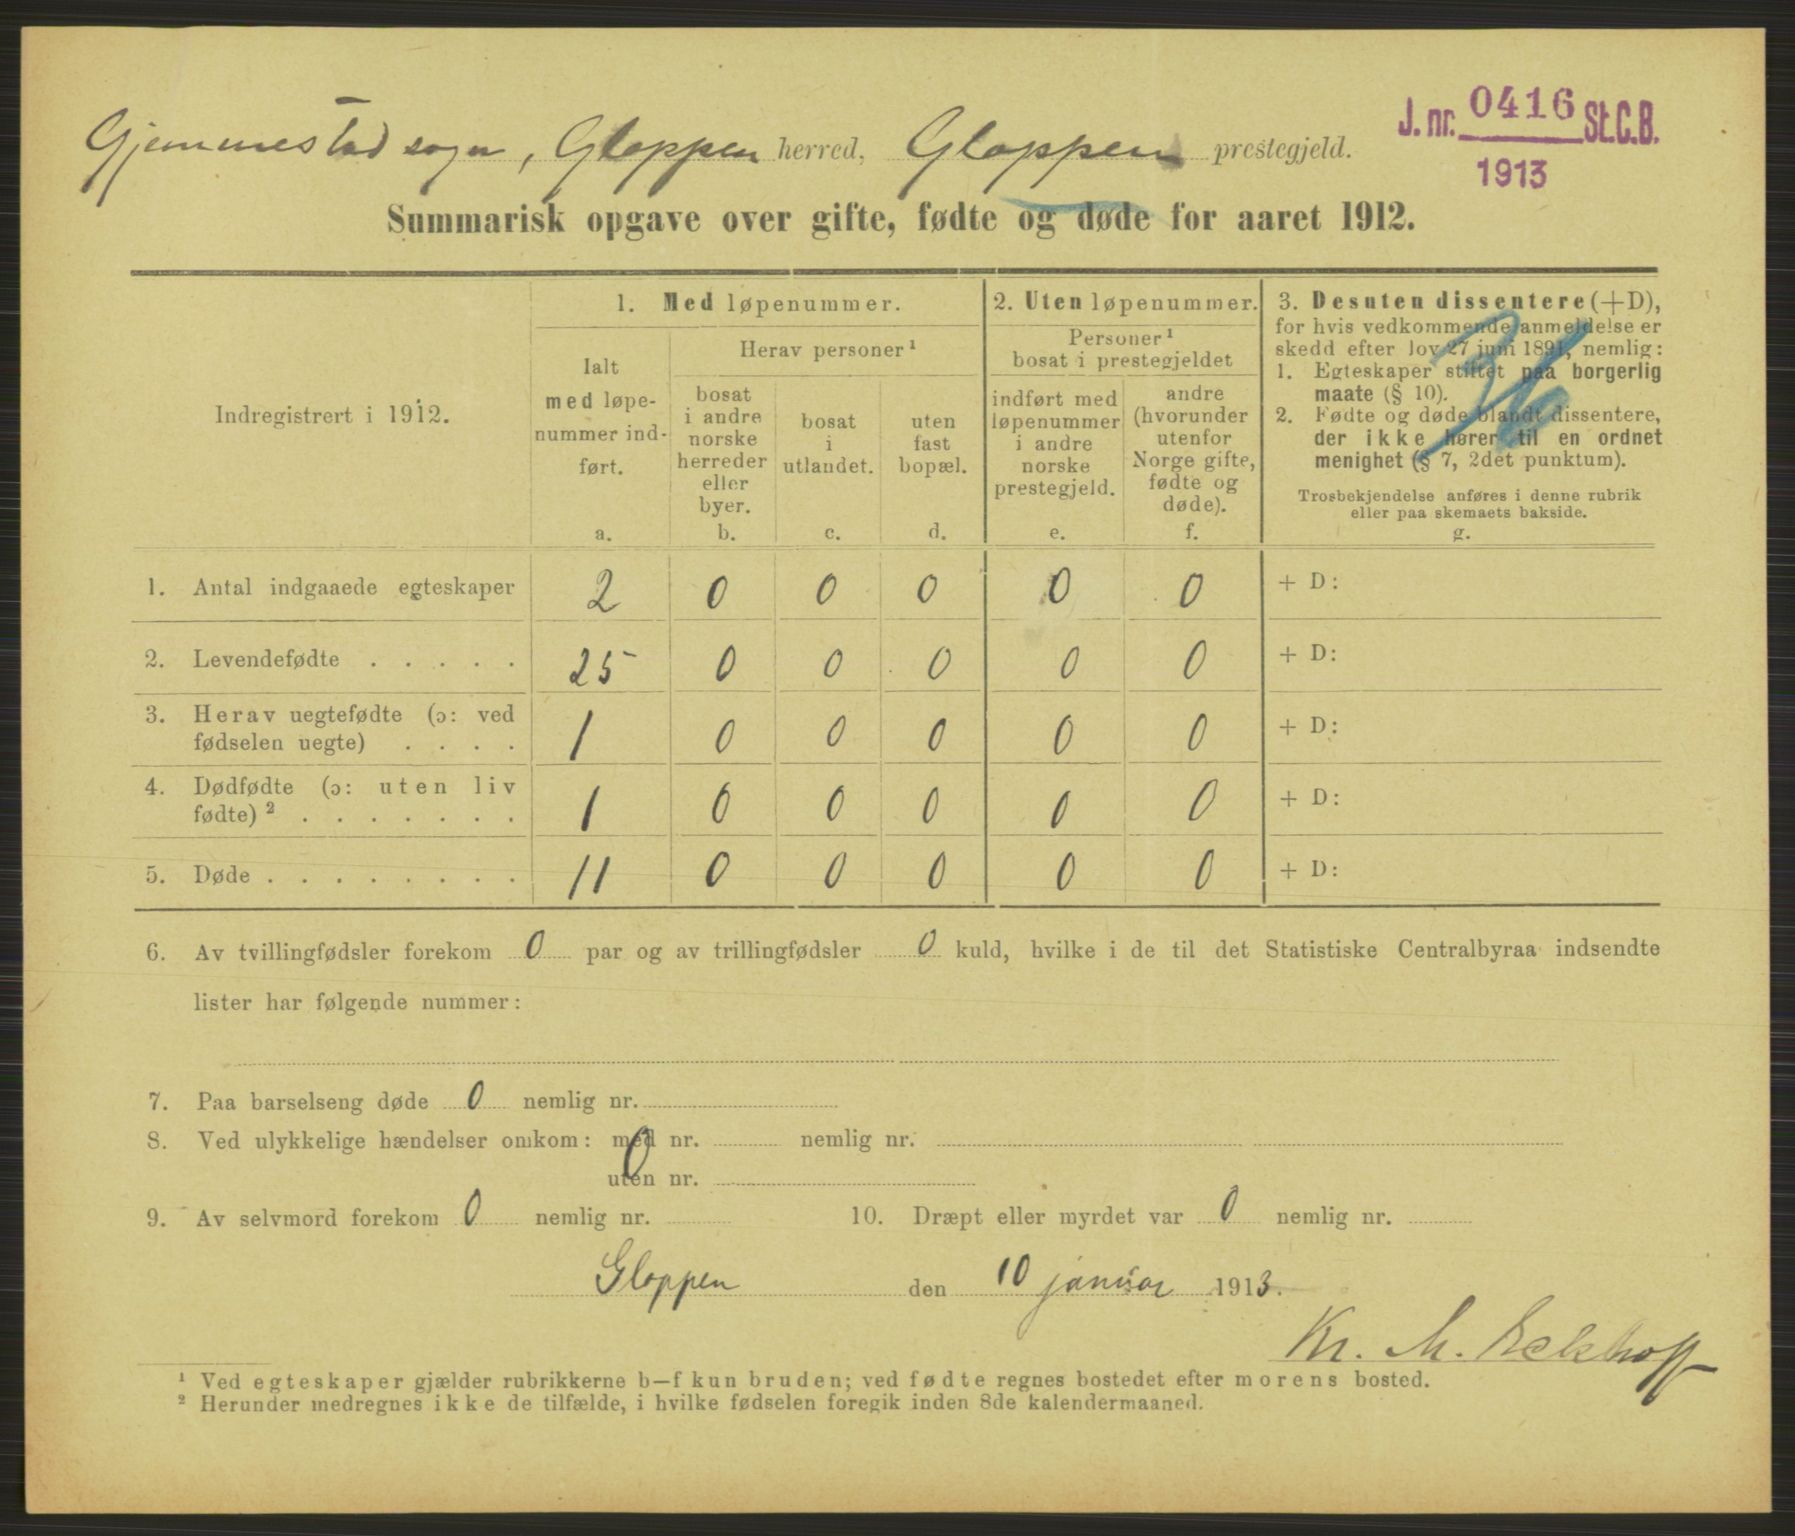 J. nr. 0416 St.C.B.
1913
Gjemmestad sogn, Gloppen herred, Gloppen prestegjeld.
Summarisk opgave over gifte, fødte og døde for aaret 1912.
Indregistrert i 1912.
1. Med løpenummer.
Ialt
med løpe-
nummer ind-
ført.
a.
Herav personer ¹
bosat
i andre
norske
herreder
eller
byer.
b.
bosat
i
utlandet.
c.
uten
fast
bopæl.
d.
2. Uten løpenummer.
Personer ¹
bosat i prestegjeldet
indført med
løpenummer
i andre
norske
prestegjeld.
e.
andre
(hvorunder
utenfor
Norge gifte,
fødte og
døde).
f.
3. Desuten dissentere (+D),
for hvis vedkommende anmeldelse er
skedd efter lov 27 juni 1891, nemlig:
1. Egteskaper stiftet paa borgerlig
maate (§ 10).
2. Fødte og døde blandt dissentere,
der ikke hører til en ordnet
menighet (§ 7, 2det punktum).
Trosbekjendelse anføres i denne rubrik
eller paa skemaets bakside.
g.
1. Antal indgaaede egteskaper 2 0 0 0 0 0 + D:
2. Levendefødte . . . . . 25 0 0 0 0 0 + D:
3. Herav uegtefødte (ɔ: ved
fødselen uegte) . . . . 1 0 0 0 0 0 + D:
4. Dødfødte (ɔ: uten liv
fødte) ² . . . . . . . 1 0 0 0 0 0 + D:
5. Døde . . . . . . . . 11 0 0 0 0 0 + D:
6. Av tvillingfødsler forekom 0 par og av trillingfødsler 0 kuld, hvilke i de til det Statistiske Centralbyraa indsendte
lister har følgende nummer:
7. Paa barselseng døde 0 nemlig nr.
8. Ved ulykkelige hændelser omkom: med nr. nemlig nr.
0
uten nr.
9. Av selvmord forekom 0 nemlig nr. 10. Dræpt eller myrdet var 0 nemlig nr.
Gloppen den 10 januar 1913.
Kr. M. Eckhoff
¹ Ved egteskaper gjælder rubrikkerne b—f kun bruden; ved fødte regnes bostedet efter morens bosted.
² Herunder medregnes ikke de tilfælde, i hvilke fødselen foregik inden 8de kalendermaaned.